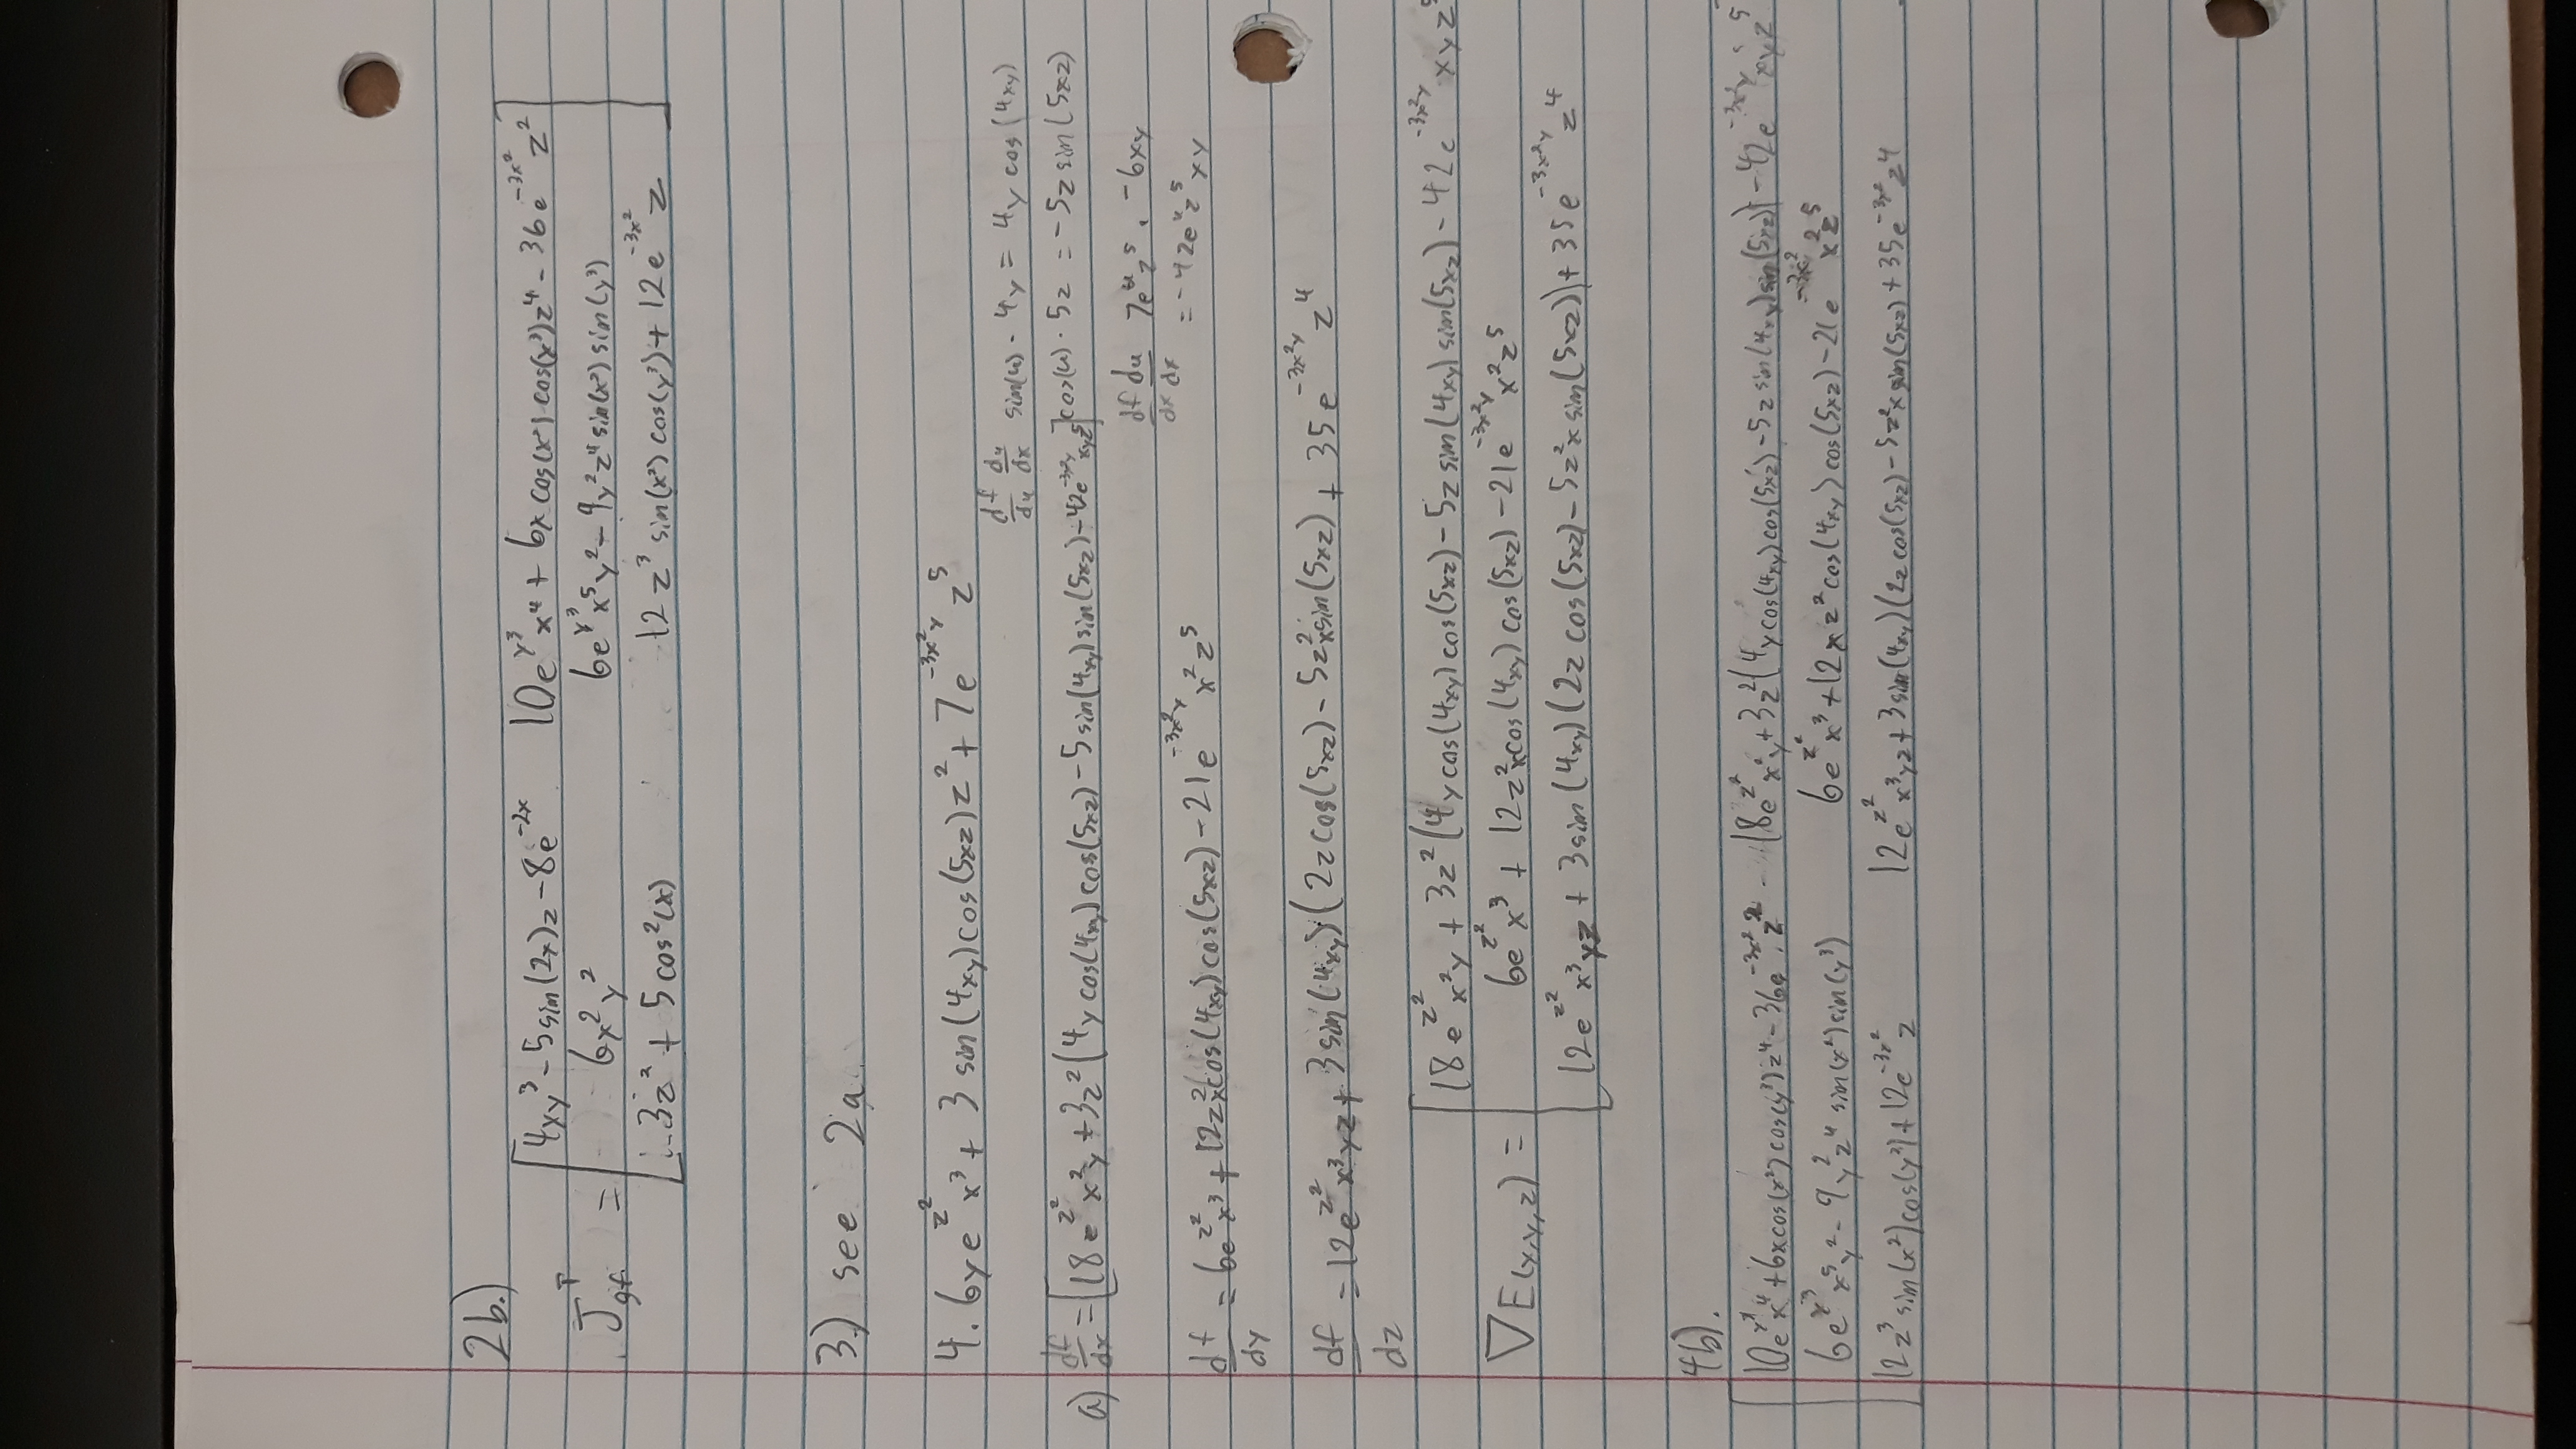 2b.)
J^T_gf = [4xy³ - 5sin(2x)z - 8e^(-2x)    10e^(y³)x⁴ + 6x cos(x²) cos(y³)z⁴ - 36e^(-3x²)z²
6x²y²    6e^(y³)x⁵y² - 9y²z⁴sin(x²) sin(y³)
-3z² + 5cos²(x)    12z³ sin(x²) cos(y³) + 12e^(-3x²)z]
3.) see 2a.
4. 6ye^(z²)x³ + 3 sin(4xy)cos(5xz)z² + 7e^(-3x²y)z⁵
df/du du/dx sin(u) · 4y = 4y cos(4xy)
a) df/dx = [18e^(z²)x²y + 3z²(4y cos(4xy)cos(5xz) - 5sin(4xy)sin(5xz) - 42e^(-3x²y)xyz⁵] cos(u) · 5z = -5z sin(5xz)
df/dx du/dx 7e^u z⁵ · -6xy
= -42e^u z⁵xy
df/dy = 6e^(z²)x³ + 12z²x cos(4xy)cos(5xz) - 21e^(-3x²y)x²z⁵
df/dz = 12e^(z²)x³yz + 3sin(4xy)(2z cos(5xz) - 5z²x sin(5xz) + 35e^(-3x²y)z⁴
∇E(x,y,z) = [18e^(z²)x²y + 3z²(4y cos(4xy)cos(5xz) - 5z sin(4xy) sin(5xz) - 42e^(-3x²y)xyz⁵
6e^(z²)x³ + 12z²x cos(4xy) cos(5xz) - 21e^(-3x²y)x²z⁵
12e^(z²)x³yz + 3sin(4xy)(2z cos(5xz) - 5z²x sin(5xz)) + 35e^(-3x²y)z⁴
4b).
[10e^(y³)x⁴ + 6x cos(x²) cos(y³)z⁴ - 36e^(-3x²)z²    18e^(z²)x²y + 3z²(4y cos(4xy)cos(5xz) - 5z sin(4xy)sin(5xz)) - 42e^(-3x²y)xyz⁵
6e^(y³)x⁵y² - 9y²z⁴ sin(x²)sin(y³)    6e^(z²)x³ + 12xz²cos(4xy)cos(5xz) - 21e^(-3x²)x²z⁵
12z³ sin(x²)cos(y³) + 12e^(-3x²)z    12e^(z²)x³yz + 3sin(4xy)(2z cos(5xz) - 5z²x sin(5xz) + 35e^(-3x²)z⁴